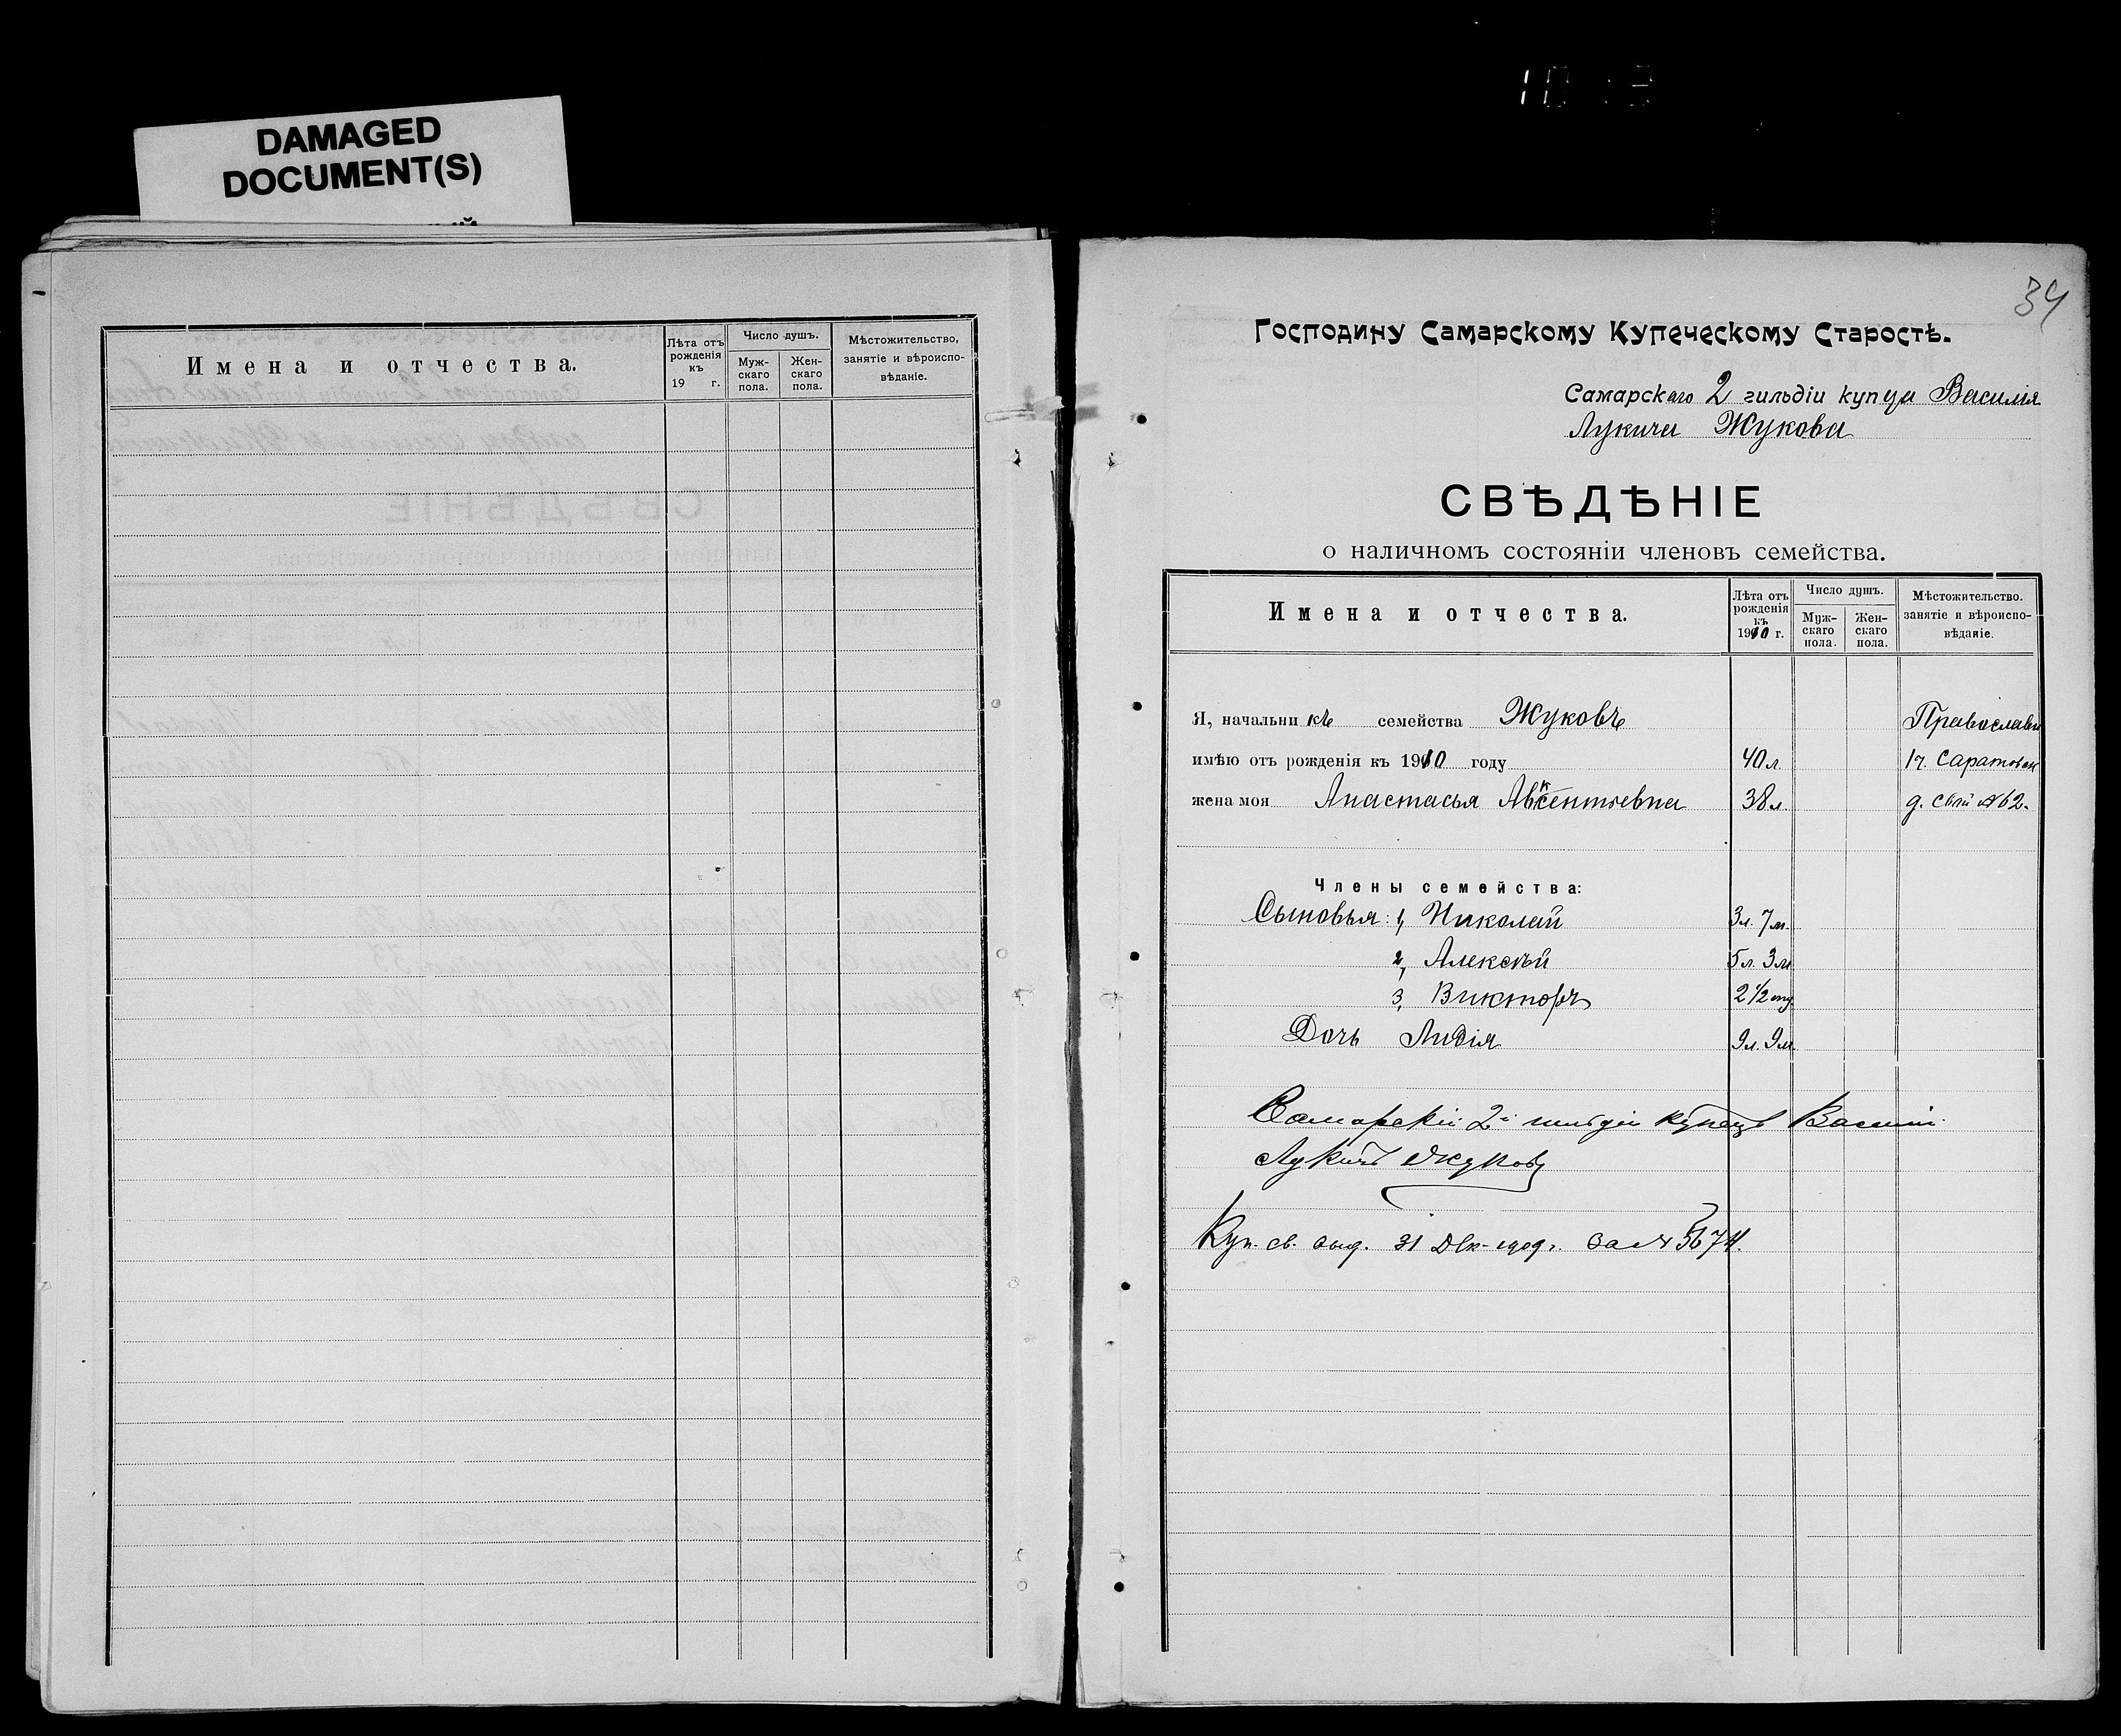 DAMAGED
DOCUMENT(S)
Имена и отчества.
Лѣта отъ рожденія къ 19 г.
Число душъ.
Муж-скаго пола.
Жен-скаго пола.
Мѣстожительство, занятіе и вѣроиспо-вѣданіе.
34
Господину Самарскому Купеческому Старостѣ.
Самарскаго 2 гильдіи купца Василія
Лукича Жукова
СВѢДѢНІЕ
о наличномъ состояніи членовъ семейства.
Имена и отчества.
Лѣта отъ рожденія къ 1910 г.
Число душъ.
Муж-скаго пола.
Жен-скаго пола.
Мѣстожительство. занятіе и вѣроиспо-вѣданіе.
Я, начальникъ семейства Жуковъ Православн
имѣю отъ рожденія къ 1910 году 40 л. 1 ч. Саратовск
жена моя Анастасья Авксентьевна 38 л. д. № 62.
Члены семейства:
Сыновья: 1, Николай 3 л. 7 м.
2, Алексѣй 5 л. 3 м
3, Викторъ 2 1/2
Дочь Лидія 9 л. 9 м.
Самарскій 2й гильдіи купецъ Василій
Лукичъ Жуковъ
Куп. св. выд. 31 Дек. 1909 г. за № 5674.